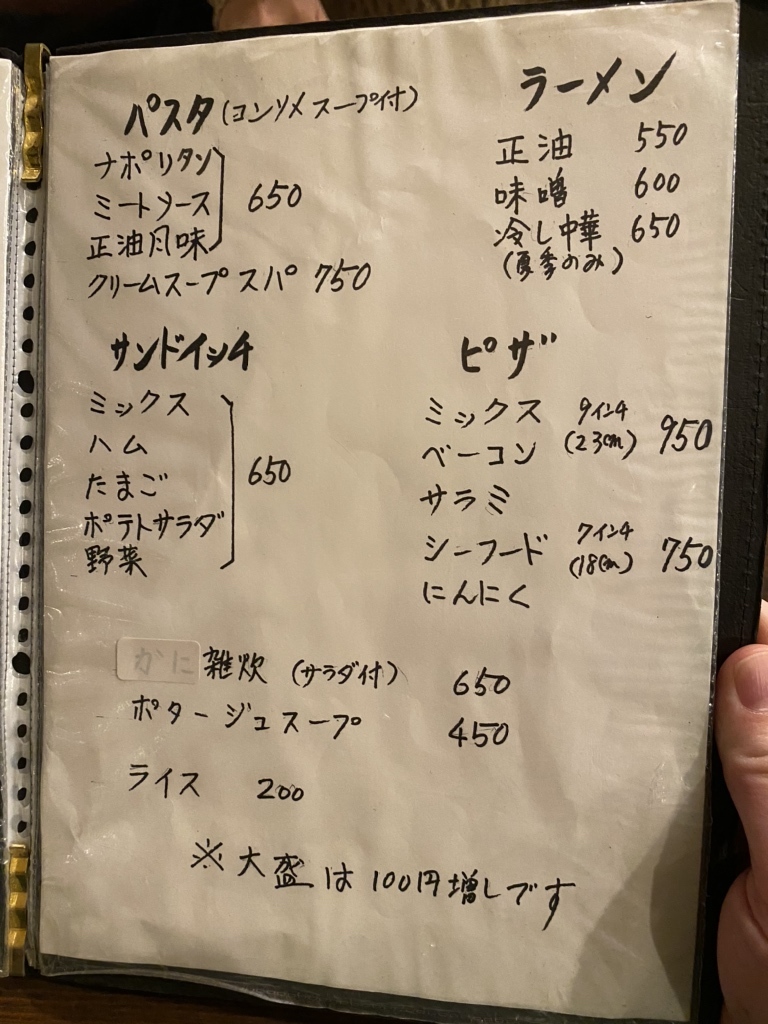 パスタ(コンソメスープ付)
ナポリタン
ミートソース
正油風味
650
クリームスープスパ 750
ラーメン
正油 550
味噌 600
冷し中華 650
(夏季のみ)
サンドイッチ
ミックス
ハム
たまご
ポテトサラダ
野菜
650
ピザ
ミックス
ベーコン
サラミ
シーフード
にんにく
9インチ
(23cm) 950
7インチ
(18cm) 750
かに雑炊 (サラダ付) 650
ポタージュスープ 450
ライス 200
※大盛は100円増しです